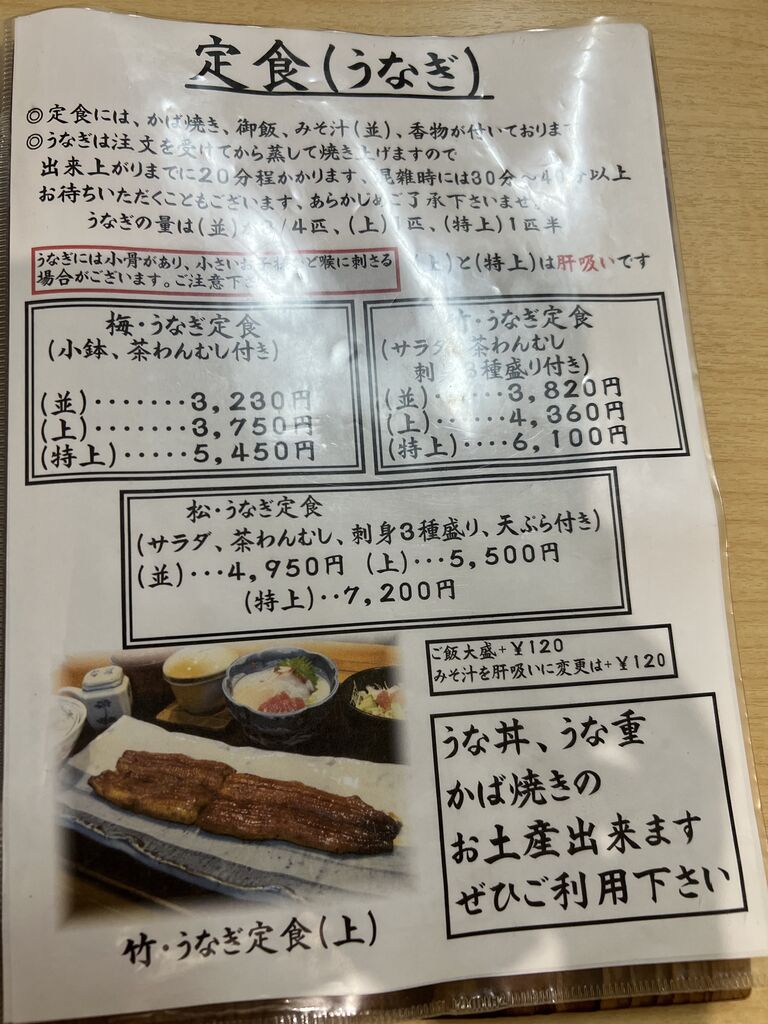 定食(うなぎ)
◎定食には、かば焼き、御飯、みそ汁(並)、香物が付いております
◎うなぎは注文を受けてから蒸して焼き上げますので
出来上がりまでに20分程かかります、混雑時には30分～40分以上
お待ちいただくこともございます、あらかじめご了承下さいませ
うなぎの量は(並)が3/4匹、(上)1匹、(特上)1匹半
うなぎには小骨があり、小さいお子様など喉に刺さる
場合がございます。ご注意下さ
(上)と(特上)は肝吸いです
梅・うなぎ定食
(小鉢、茶わんむし付き)
(並)・・・・・・・3,230円
(上)・・・・・・・3,750円
(特上)・・・・・5,450円
竹・うなぎ定食
(サラダ、茶わんむし
刺身3種盛り付き)
(並)・・・・・・3,820円
(上)・・・・・・4,360円
(特上)・・・・6,100円
松・うなぎ定食
(サラダ、茶わんむし、刺身3種盛り、天ぷら付き)
(並)・・・4,950円 (上)・・・5,500円
(特上)・・7,200円
ご飯大盛+¥120
みそ汁を肝吸いに変更は+¥120
うな丼、うな重
かば焼きの
お土産出来ます
ぜひご利用下さい
竹・うなぎ定食(上)